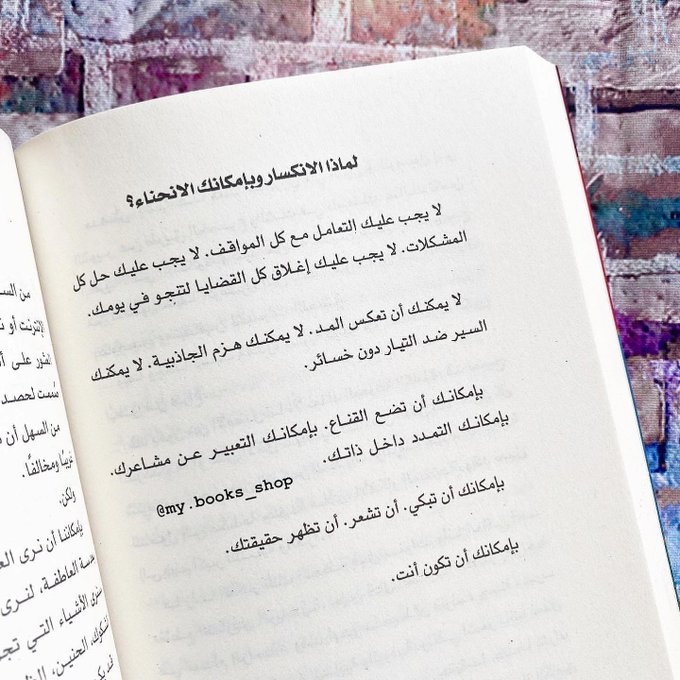 لماذا الانكسار وبإمكانك الانحناء؟
لا يجب عليك التعامل مع كل المواقف. لا يجب عليك حل كل
المشكلات. لا يجب عليك إغلاق كل القضايا لتنجو في يومك.
لا يمكنك أن تعكس المد. لا يمكنك هزم الجاذبية. لا يمكنك
السير ضد التيار دون خسائر.
بإمكانك أن تضع القناع. بإمكانك التعبير عن مشاعرك.
بإمكانك التمدد داخل ذاتك.
@my.books_shop
بإمكانك أن تبكي. أن تشعر. أن تظهر حقيقتك.
بإمكانك أن تكون أنت.
من
الإنترنت أو
على
صُممت لحصد
من السهل أن
غريبًا ومخالفًا.
ولكن.
بإمكاننا أن نرى
العاطفة، لنرى
الأشياء التي
الحنين،